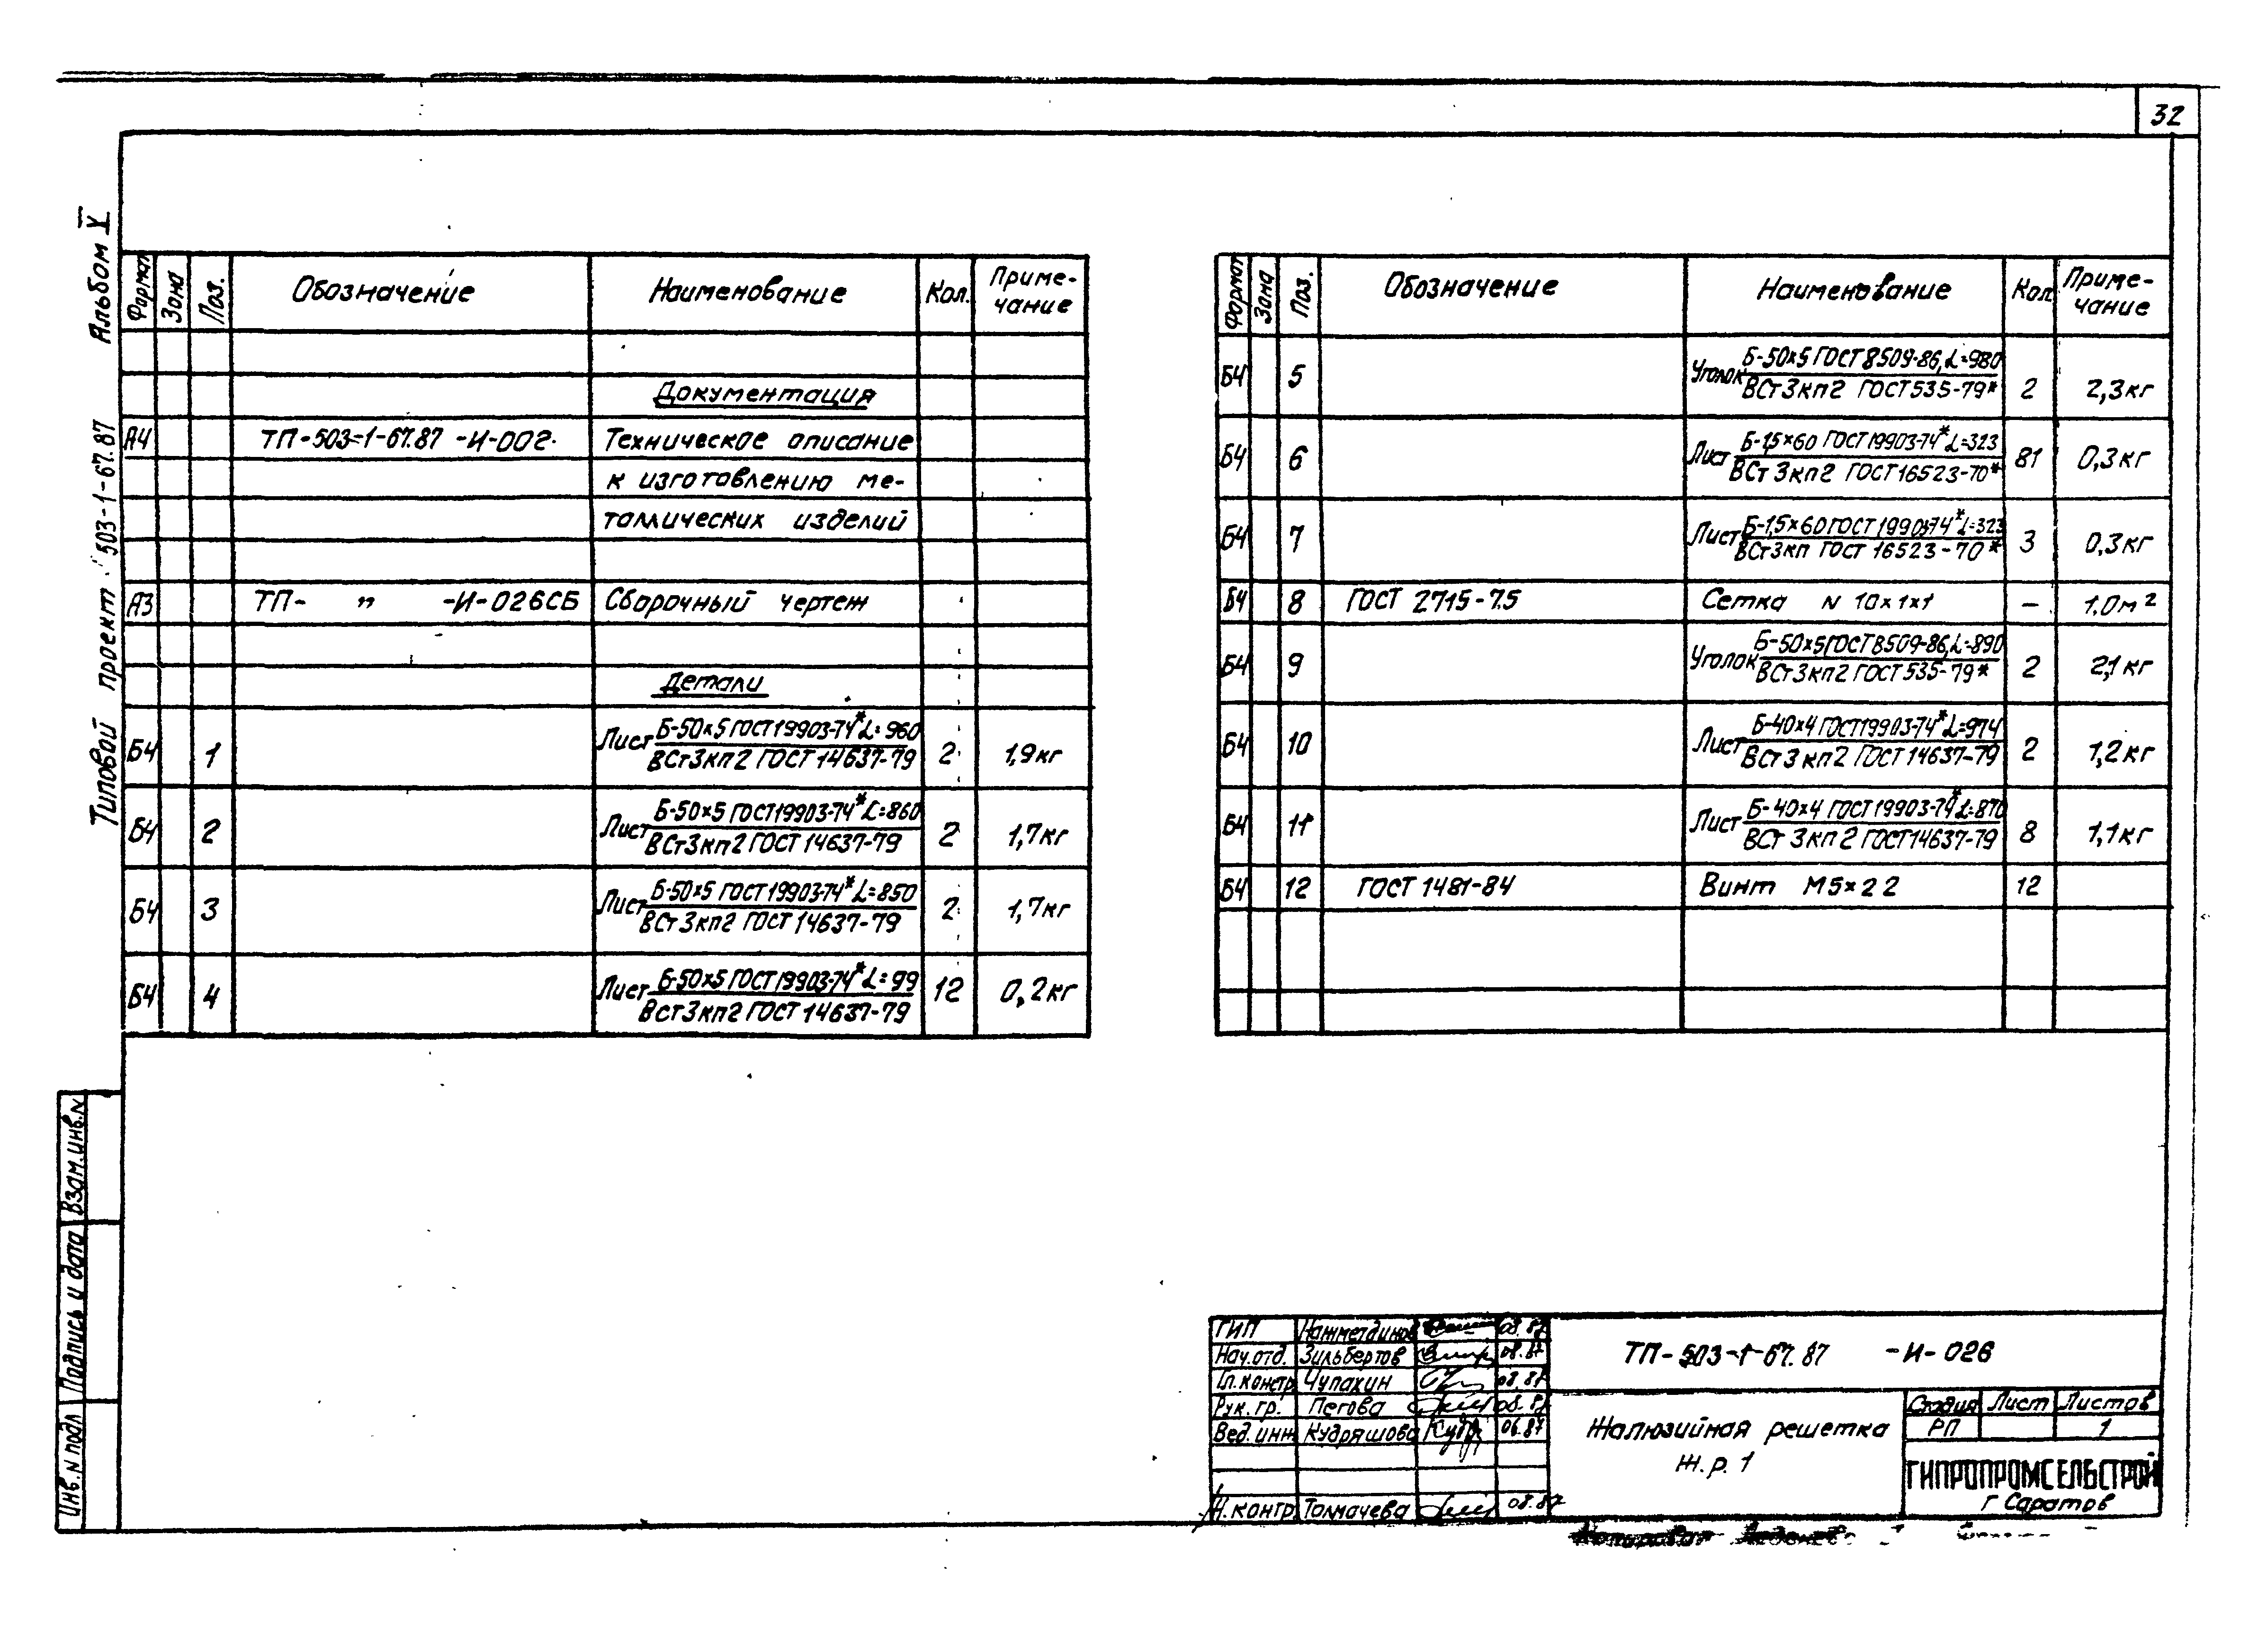 32
Типовой проект 503-1-67.87 Альбом V
Формат Зона Поз. Обозначение Наименование Кол. Приме-
чание
Документация
А4 ТП-503-1-67.87 -И-002. Техническое описание
к изготовлению ме-
таллических изделий
А3 ТП- " -И-026СБ Сборочный чертеж
Детали
Б4 1 Лист Б-50х5 ГОСТ19903-74* L=960 2 1,9кг
ВСт3кп2 ГОСТ14637-79
Б4 2 Лист Б-50х5 ГОСТ19903-74* L=860 2 1,7кг
ВСт3кп2 ГОСТ14637-79
Б4 3 Лист Б-50х5 ГОСТ19903-74* L=850 2 1,7кг
ВСт3кп2 ГОСТ14637-79
Б4 4 Лист Б-50х5 ГОСТ19903-74* L=99 12 0,2кг
ВСт3кп2 ГОСТ14637-79
Формат Зона Поз. Обозначение Наименование Кол. Приме-
чание
Б4 5 Уголок Б-50х5 ГОСТ8509-86, L=980 2 2,3кг
ВСт3кп2 ГОСТ535-79*
Б4 6 Лист Б-1,5х60 ГОСТ19903-74* L=323 81 0,3кг
ВСт3кп2 ГОСТ16523-70*
Б4 7 Лист Б-1,5х60 ГОСТ19903-74* L=323 3 0,3кг
ВСт3кп ГОСТ 16523-70*
Б4 8 ГОСТ 2715-75 Сетка N 10х1х1 – 1.0м²
Б4 9 Уголок Б-50х5 ГОСТ8509-86, L=890 2 2,1кг
ВСт3кп2 ГОСТ535-79*
Б4 10 Лист Б-40х4 ГОСТ19903-74* L=974 2 1,2кг
ВСт3кп2 ГОСТ14637-79
Б4 11 Лист Б-40х4 ГОСТ19903-74* L=870 8 1,1кг
ВСт3кп2 ГОСТ14637-79
Б4 12 ГОСТ 1481-84 Винт М5х22 12
Инв. N подл Подпись и дата Взам.инв.N
ГИП Нажметдинов 08.87
Нач.отд. Зильбертов 08.87
Гл.констр. Чупахин 08.87
Рук.гр. Пегова 08.87
Вед.инж Кудряшова 06.87
Н.контр. Толмачева 08.87
ТП-503-1-67.87 -И-026
Жалюзийная решетка
Ж.р.1
Стадия Лист Листов
РП 1
ГИПРОПРОМСЕЛЬСТРОЙ
г Саратов
Копировал